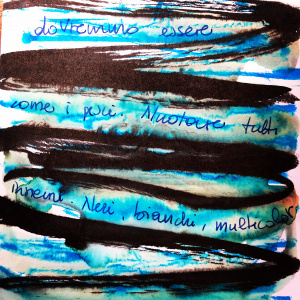 dovremmo essere
come i pesci. Nuotare tutti
insieme. Neri, bianchi, multicolor